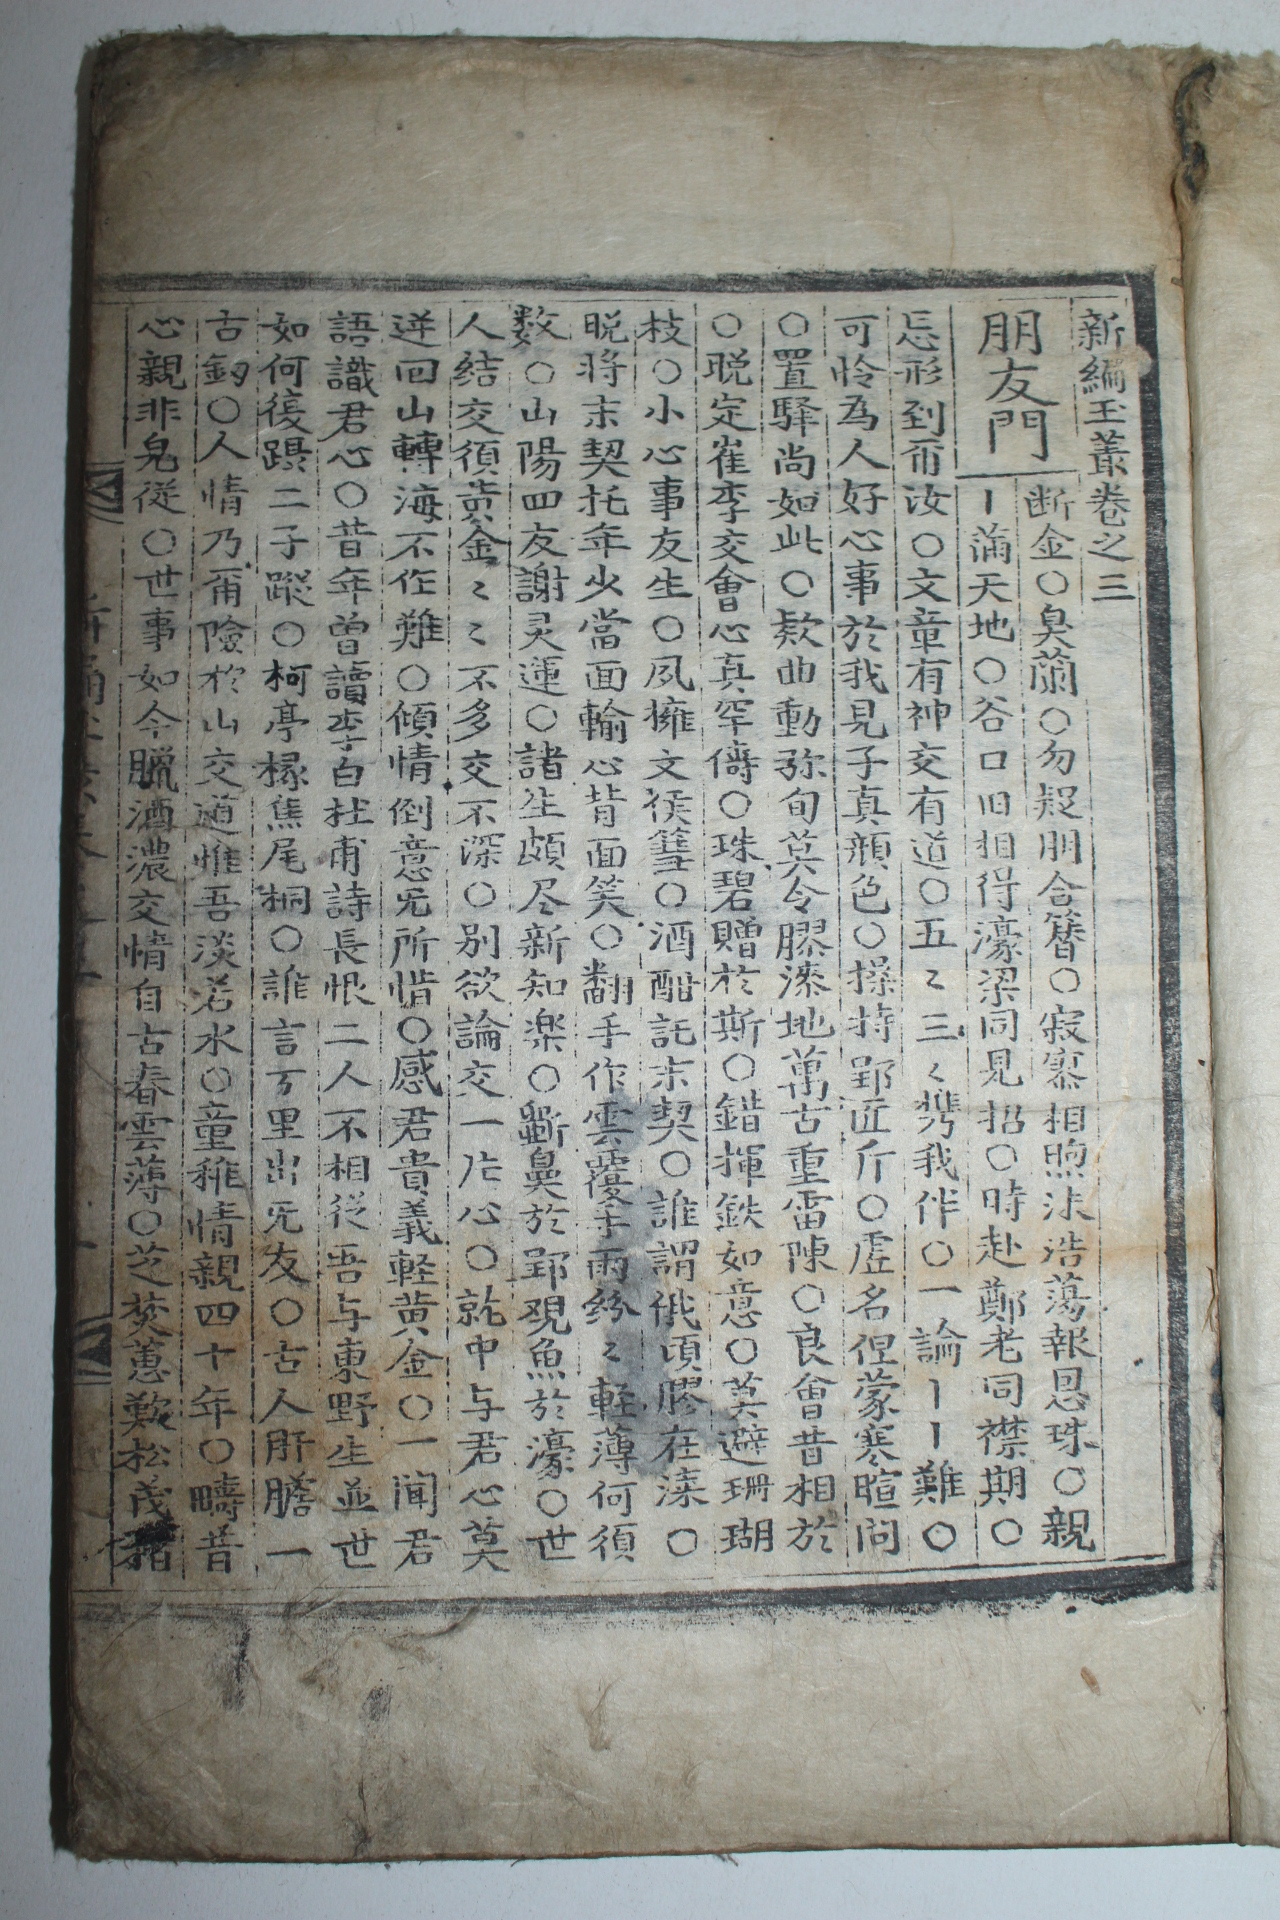 新編玉叢卷之三
朋友門
断金○臭蘭○勿疑朋合簪○寂寥相喣沫浩蕩報恩珠○親
｜滿天地○谷口旧相得濠梁同見招○時赴鄭老同襟期○
忘形到甭汝○文章有神交有道○五〻三〻携我伴○一論｜｜難○
可怜為人好心事於我見子真顔色○操持郢匠斤○虚名但蒙寒暄问
○置驛尚如此○欵曲動弥旬莫令膠漆地萬古重雷陳○良會昔相於
○晩定崔李交會心真罕儔○珠碧贈於斯○錯揮鉄如意○莫避珊瑚
枝○小心事友生○夙擁文侯篲○酒酣託末契○誰謂俄頃膠在漆○
晩将末契托年少當面輸心背面笑○翻手作雲覆手雨紛〻軽薄何須
数○山陽四友謝灵運○諸生頗尽新知楽○斲鼻於郢观魚於濠○世
人结交須黄金〻〻不多交不深○别欲論交一片心○就中与君心莫
逆回山轉海不作難○傾情倒意旡所惜○感君貴義軽黄金○一闻君
語識君心○昔年曽讀李白杜甫詩長恨二人不相従吾与東野生並世
如何復躡二子蹤○柯亭椽焦尾桐○誰言万里出旡友○古人肝膽一
古釰○人情乃甭險於山交道惟吾淡若水○童稚情親四十年○疇昔
心親非皃従○世事如今臘酒濃交情自古春雲薄○芝焚蕙歎松茂